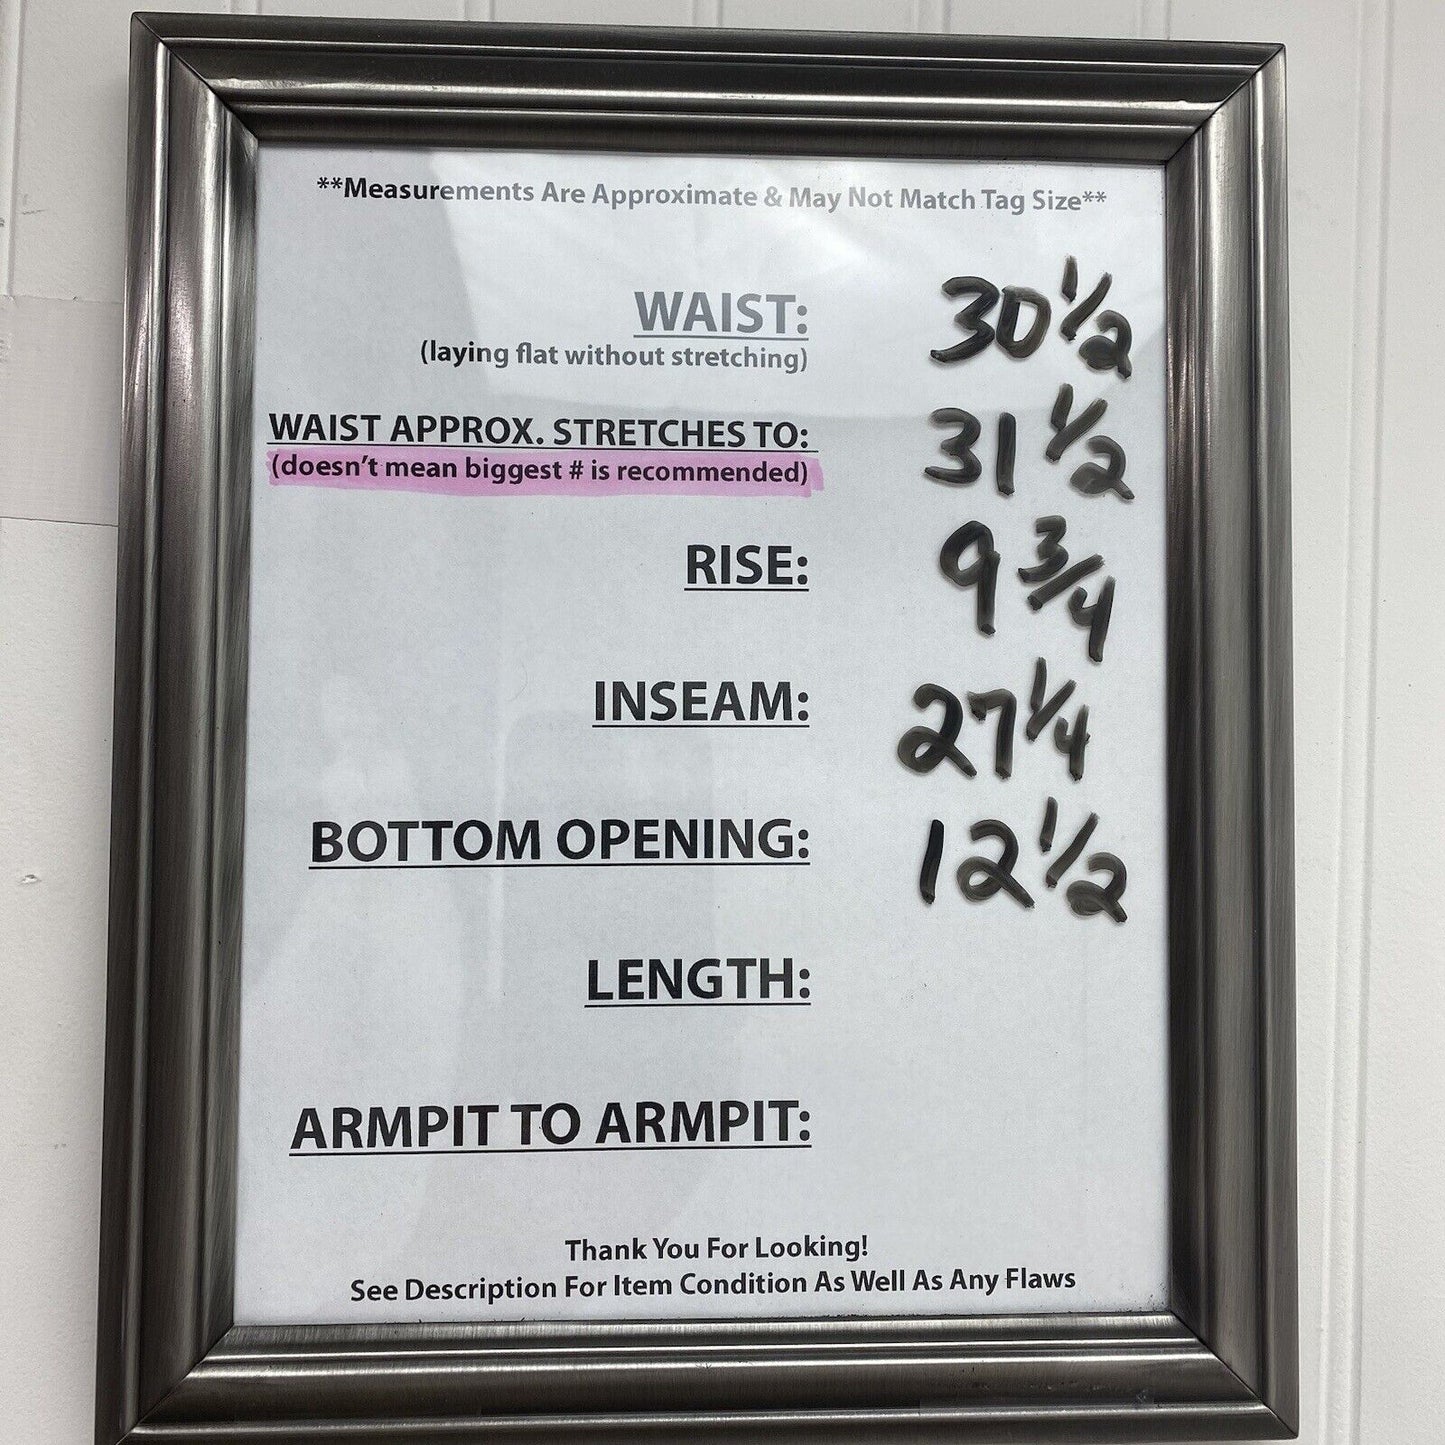 **Measurements Are Approximate & May Not Match Tag Size**
WAIST: 30 1/2
(laying flat without stretching)
WAIST APPROX. STRETCHES TO: 31 1/2
(doesn't mean biggest # is recommended)
RISE: 9 3/4
INSEAM: 27 1/4
BOTTOM OPENING: 12 1/2
LENGTH:
ARMPIT TO ARMPIT:
Thank You For Looking!
See Description For Item Condition As Well As Any Flaws